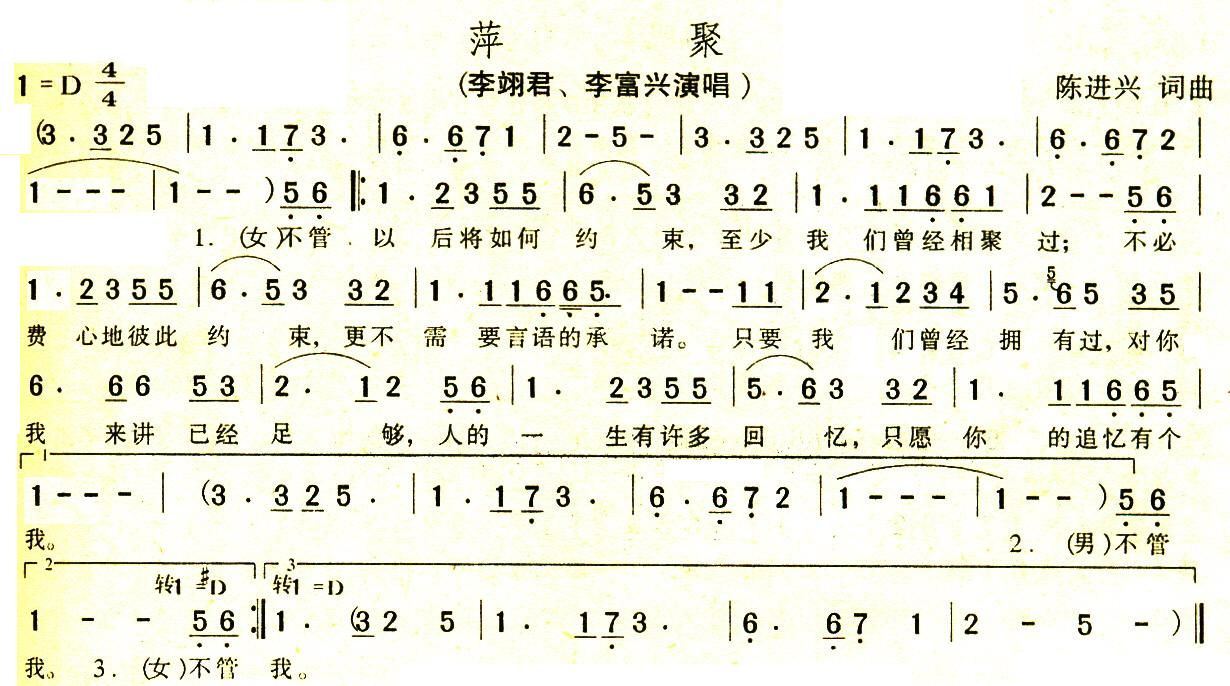 萍 聚
(李翊君、李富兴演唱)
1=D 4/4
陈进兴 词曲
(3 . 3 2 5 | 1 . 1 7 3 . | 6 . 6 7 1 | 2 - 5 - | 3 . 3 2 5 | 1 . 1 7 3 . | 6 . 6 7 2 |
1 - - - | 1 - - ) 5 6 ‖: 1 . 2 3 5 5 | 6 . 5 3 3 2 | 1 . 1 1 6 6 1 | 2 - - 5 6 |
1. (女)不管 以 后将如何 约 束, 至少 我 们曾经相聚 过; 不必
1 . 2 3 5 5 | 6 . 5 3 3 2 | 1 . 1 1 6 6 5 . | 1 - - 1 1 | 2 . 1 2 3 4 | 5 . 5 6 5 3 5 |
费 心地彼此 约 束, 更不 需 要言语的承 诺。 只要 我 们曾经 拥 有过, 对你
6 . 6 6 5 3 | 2 . 1 2 5 6 | 1 . 2 3 5 5 | 5 . 6 3 3 2 | 1 . 1 1 6 6 5 |
我 来讲 已经 足 够, 人的 一 生有许多 回 忆, 只愿 你 的追忆有个
1
1 - - - | (3 . 3 2 5 . | 1 . 1 7 3 . | 6 . 6 7 2 | 1 - - - | 1 - - ) 5 6
我。 2. (男)不管
2 转1=#D 3 转1=D
1 - - 5 6 :‖ 1 . (3 2 5 | 1 . 1 7 3 . | 6 . 6 7 1 | 2 - 5 - ) ‖
我。 3. (女)不管 我。